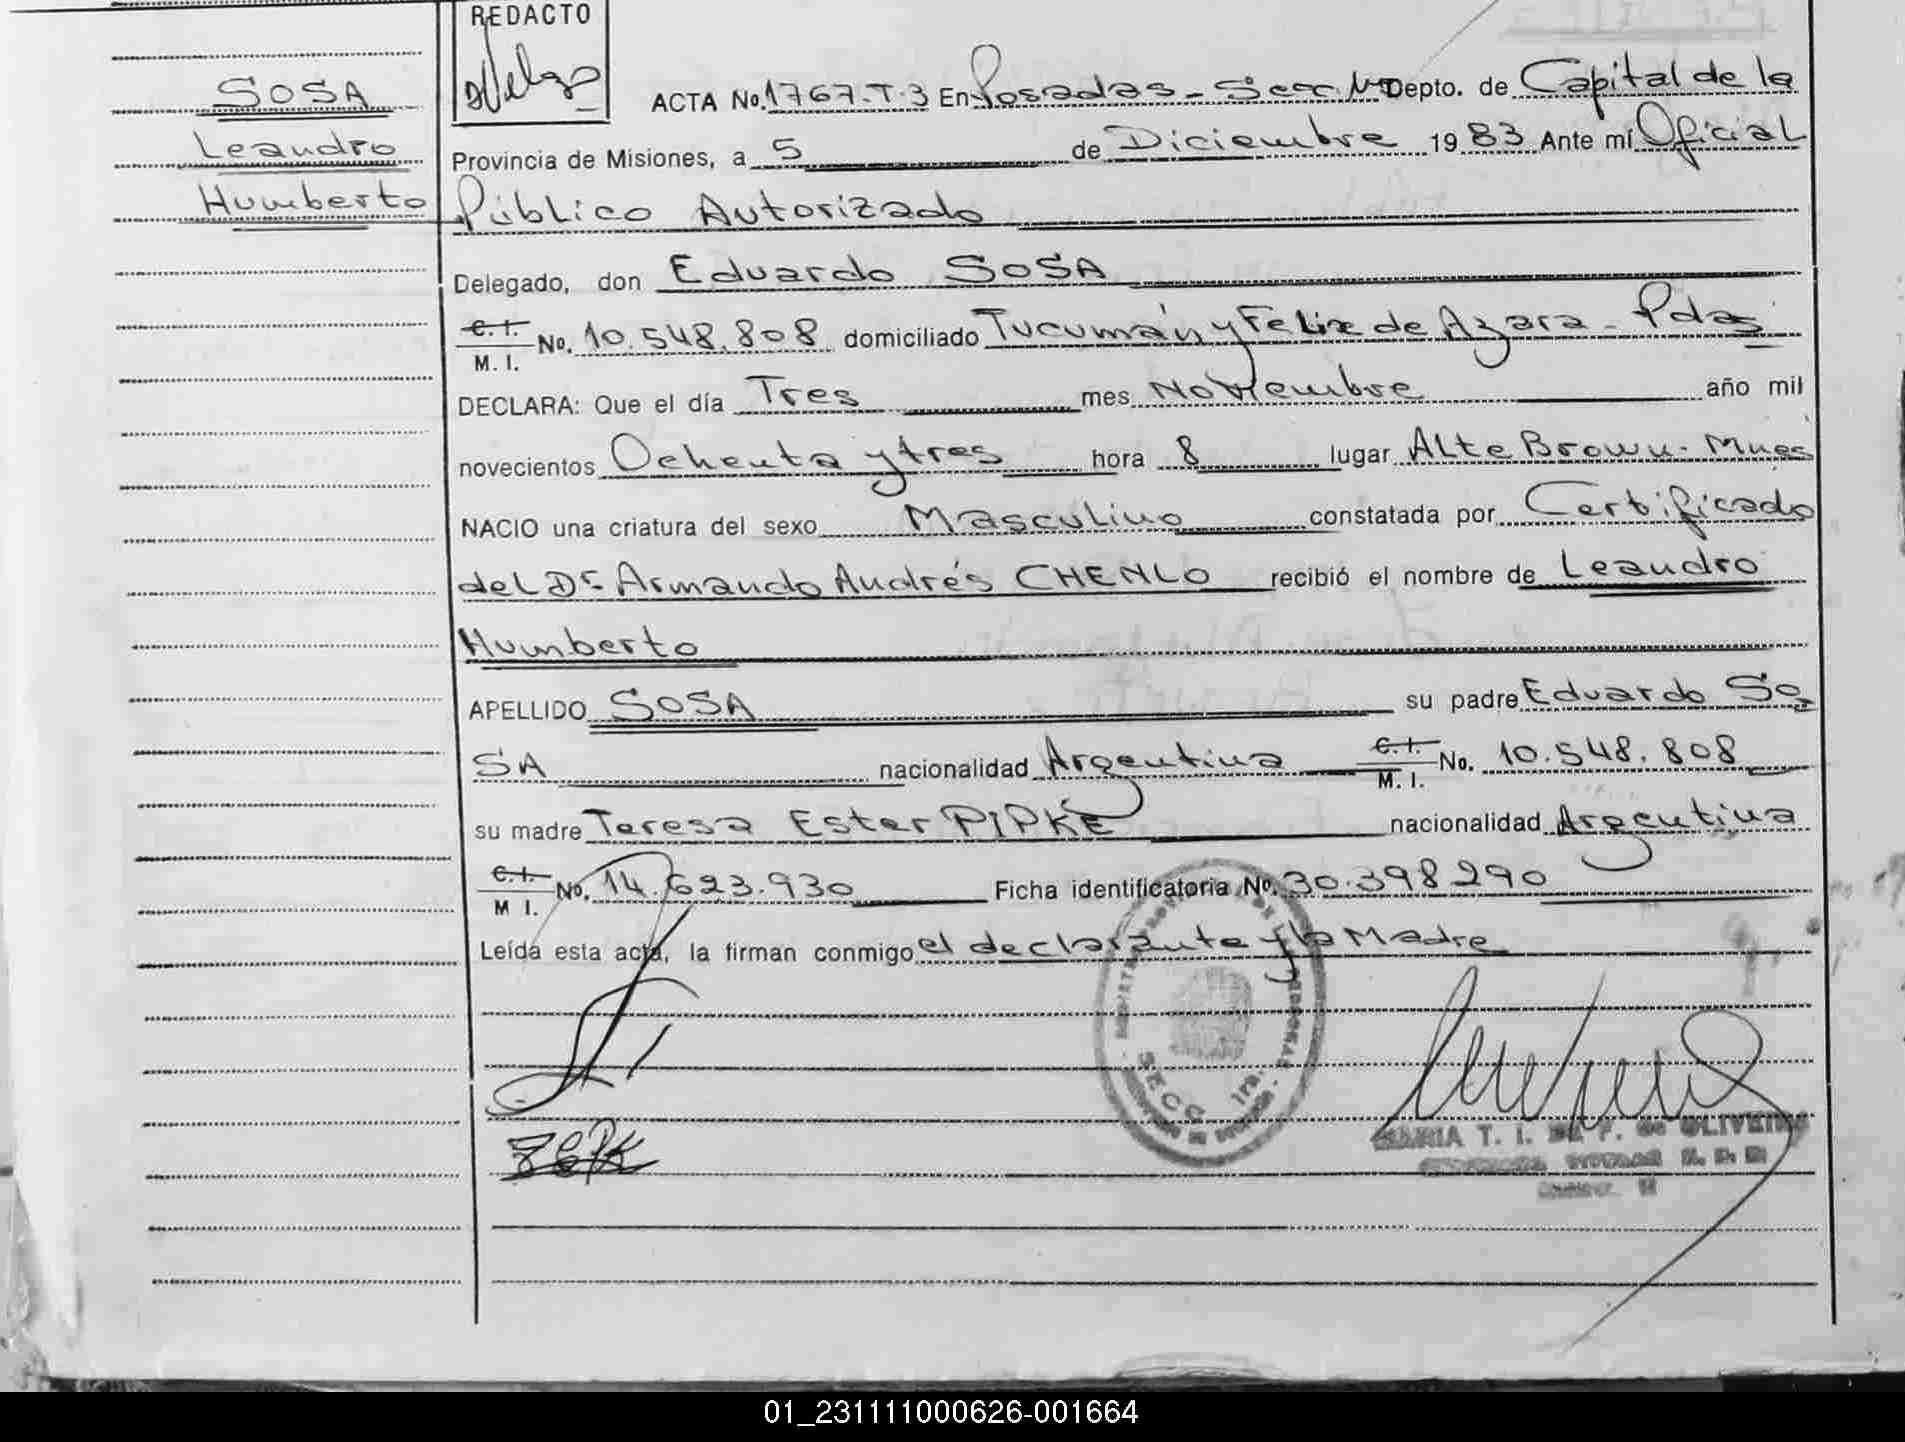 REDACTO
SOSA
Leandro
Humberto
ACTA No. 1767-T-3 En Posadas - Secc Depto. de Capital de la
Provincia de Misiones, a 5 de Diciembre 1983 Ante mí Oficial
Público Autorizado
Delegado, don Eduardo SOSA
C.I. M.I. No. 10.548.808 domiciliado Tucumán y Felix de Azara - Pdas
DECLARA: Que el día Tres mes Noviembre año mil
novecientos Ochenta y tres hora 8 lugar Alte Brown - Mnes
NACIO una criatura del sexo Masculino constatada por Certificado
del Dr. Armando Andrés CHENLO recibió el nombre de Leandro
Humberto
APELLIDO SOSA su padre Eduardo So
SA nacionalidad Argentina C.I. M.I. No. 10.548.808
su madre Teresa Ester PIPKE nacionalidad Argentina
C.I. M I. No. 14.623.930 Ficha identificatoria No. 30.398290
Leída esta acta, la firman conmigo el declarante y la Madre
SECC 1ra.
MARIA T. I. DE F. de OLIVEIRA
01_231111000626-001664